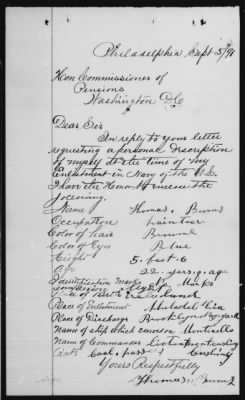 Philadelphia Sept 5/91
Hon Commissioner of
Pensions
Washington D.C
Dear Sir
In reply to your letter
requesting a personal Discription
of myself at the time of my
Enlistment in Navy of the U.S.
I have the Honor to
Name Thomas Burns
Occupation Painter
Color of hair Brown
Color of Eyes Blue
Height 5. feet 6
Age 22. years. of. ag
Marks
Ireland
Place of Enlistment Philadelphia
Place of Discharge Brooklyn
Name of ship which Monticello
Name of Commander Cushing
Rate Coal. pass
Yours Respectfully
Thomas Burns